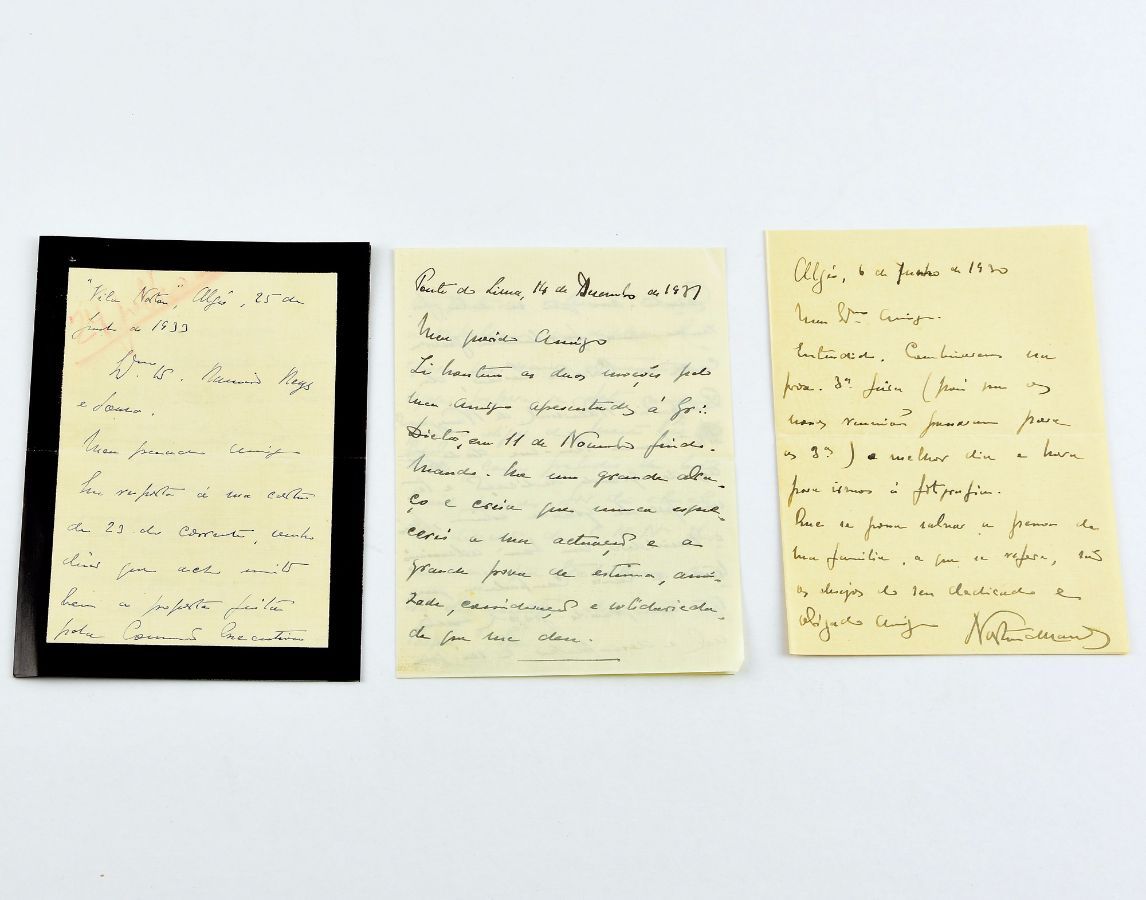 "Vila Norton", Algés, 25 de
Junho de 1933
Exmo Sr. Ramiro Neys
e Sousa.
Meu presado amigo
Em resposta à sua carta
de 23 do corrente, venho
dizer que acho muito
bem a proposta feita
pela Comissão Executiva
Ponte do Lima, 14 de Dezembro de 1931
Meu querido Amigo
Li hontem as duas moções pelo
meu Amigo apresentadas à Gr∴
Dieta, em 11 de Novembro findo.
Mando-lhe um grande abra-
ço e creia que nunca esque-
cerei a sua actuação e a
grande prova de estima, ami-
zade, consideração e solidarieda-
de que me deu.
Algés, 6 de Junho de 1930
Meu Exmo Amigo.
Entendido. Combinaremos na
prox. 3ª feira (pois que as
nossas reuniões passaram para
as 3as) o melhor dia e hora
para irmos à fotografia.
Que se possa salvar a pessoa de
sua familia, a que se refere, são
os desejos do seu dedicado e
obrigado amigo Norton de Mattos